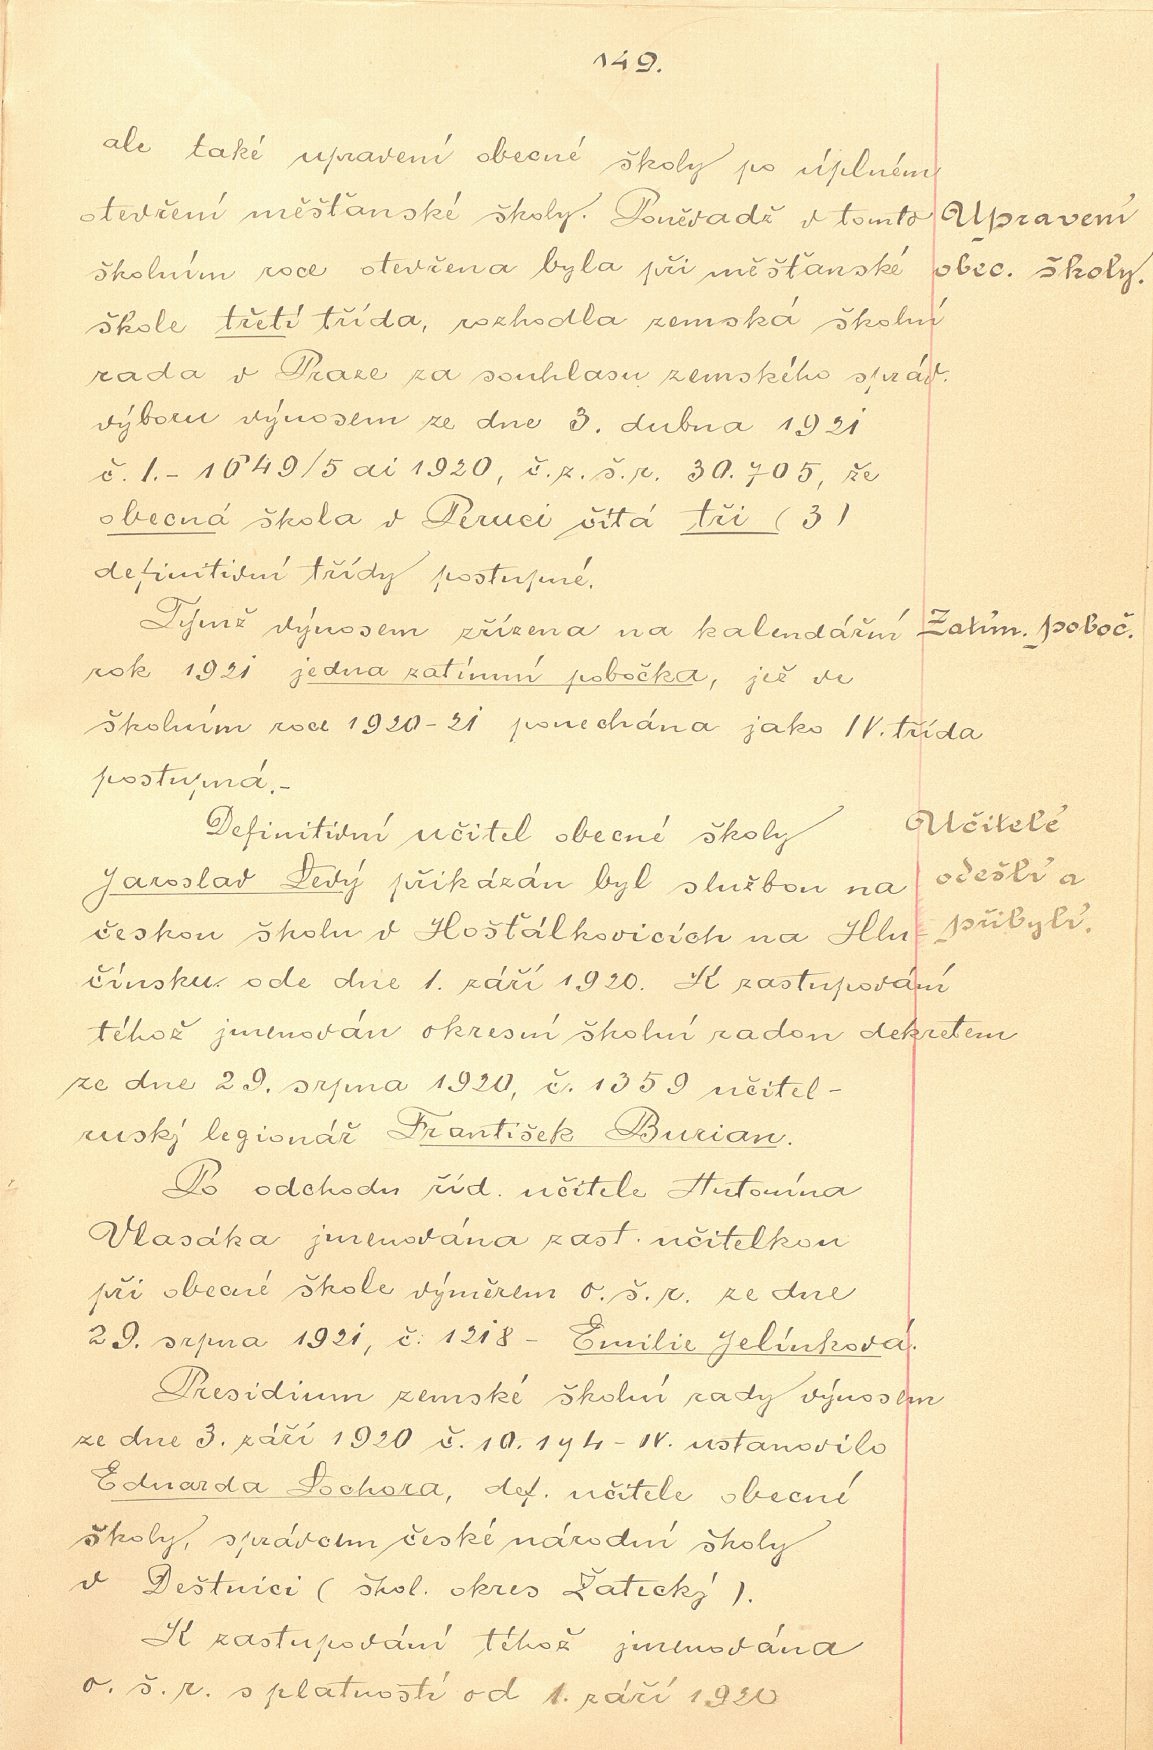 149.
ale také upravení obecné školy po úplném
otevření měšťanské školy. Poněvadž v tomto
Upravení
školním roce otevřena byla při měšťanské
obec. školy.
škole třetí třída, rozhodla zemská školní
rada v Praze za souhlasu zemského správ.
výboru výnosem ze dne 3. dubna 1921
č. I.- 1649/5 ai 1920, č. z. š. r. 30.705, že
obecná škola v Peruci čítá tři (3)
definitivní třídy postupné.
Týmž výnosem zřízena na kalendářní
Zatím. poboč.
rok 1921 jedna zatímní pobočka, jež ve
školním roce 1920-21 ponechána jako IV. třída
postupná.-
Definitivní učitel obecné školy
Učitelé
Jaroslav Ledý přikázán byl službou na
odešlí a
českou školu v Hošťálkovicích na Hlu-
přibylí.
čínsku ode dne 1. září 1920. K zastupování
téhož jmenován okresní školní radou dekretem
ze dne 29. srpna 1920, č. 1359 učitel-
ruský legionář František Burian.
Po odchodu říd. učitele Antonína
Vlasáka jmenována zast. učitelkou
při obecné škole výměrem o. š. r. ze dne
29. srpna 1921, č. 1218 - Emilie Jelínková.
Presidium zemské školní rady výnosem
ze dne 3. září 1920 č. 10.174 - IV. ustanovilo
Eduarda Lochora, def. učitele obecné
školy, správcem české národní školy
v Deštnici (škol. okres Žatecký).
K zastupování téhož jmenována
o. š. r. s platností od 1. září 1920